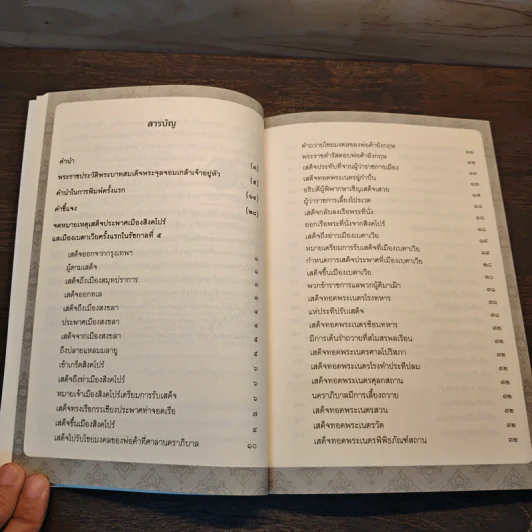 สารบัญ
คำนำ (๑)
พระราชประวัติพระบาทสมเด็จพระจุลจอมเกล้าเจ้าอยู่หัว (๔)
คำนำในการพิมพ์ครั้งแรก (๑๔)
คำชี้แจง (๒๘)
จดหมายเหตุเสด็จประพาศเมืองสิงคโปร์
แลเมืองเบตาเวียครั้งแรกในรัชกาลที่ ๕
เสด็จออกจากกรุงเทพฯ ๑
ผู้ตามเสด็จ ๑
เสด็จถึงเมืองสมุทปราการ ๓
เสด็จออกทเล ๓
เสด็จถึงเมืองสงขลา ๔
ประพาศเมืองสงขลา ๔
เสด็จจากเมืองสงขลา ๕
ถึงปลายแหลมมลายู ๕
เข้าเกร็ดสิงคโปร์ ๕
เสด็จถึงท่าเมืองสิงคโปร์ ๖
หมายเจ้าเมืองสิงคโปร์เตรียมการรับเสด็จ ๖
เสด็จทรงเรือกรรเชียงประพาศท่าจอดเรือ ๗
เสด็จขึ้นเมืองสิงคโปร์
เสด็จไปรับไชยมงคลของพ่อค้าที่ศาลานคราภิบาล ๑๐
คำถวายไชยมงคลของพ่อค้าอังกฤษ ๑๑
พระราชดำรัสตอบพ่อค้าอังกฤษ
เสด็จประทับที่จวนผู้ว่าราชการเมือง
เสด็จทอดพระเนตรอู่กำปั่น
อธิบดีผู้พิพากษาเชิญเสด็จเสวย ๑๗
ผู้ว่าราชการเลี้ยงโปรเวต ๑๘
เสด็จกลับลงเรือพระที่นั่ง ๑๘
ออกเรือพระที่นั่งจากสิงคโปร์ ๑๘
เสด็จถึงอ่าวเมืองเบตาเวีย
หมายเตรียมการรับเสด็จที่เมืองเบตาเวีย
กำหนดการเสด็จประพาศที่เมืองเบตาเวีย ๒๘
เสด็จขึ้นเมืองเบตาเวีย ๓๐
พวกข้าราชการแลพวกผู้ดีมาเฝ้า ๓๑
เสด็จทอดพระเนตรโรงทหาร ๓๑
แห่ประทีปรับเสด็จ ๓๑
เสด็จทอดพระเนตรซ้อมทหาร ๓๒
มีการเต้นรำถวายที่สโมสรพลเรือน ๓๒
เสด็จทอดพระเนตรศาลโปริสภา ๓๒
เสด็จทอดพระเนตรโรงทำประทีปลม ๓๒
เสด็จทอดพระเนตรคุลกสถาน ๓๒
นคราภิบาลมีการเลี้ยงถวาย ๓๒
เสด็จทอดพระเนตรสวน ๓๒
เสด็จทอดพระเนตรวัด ๓๒
เสด็จทอดพระเนตรพิพิธภัณฑ์สถาน ๓๒